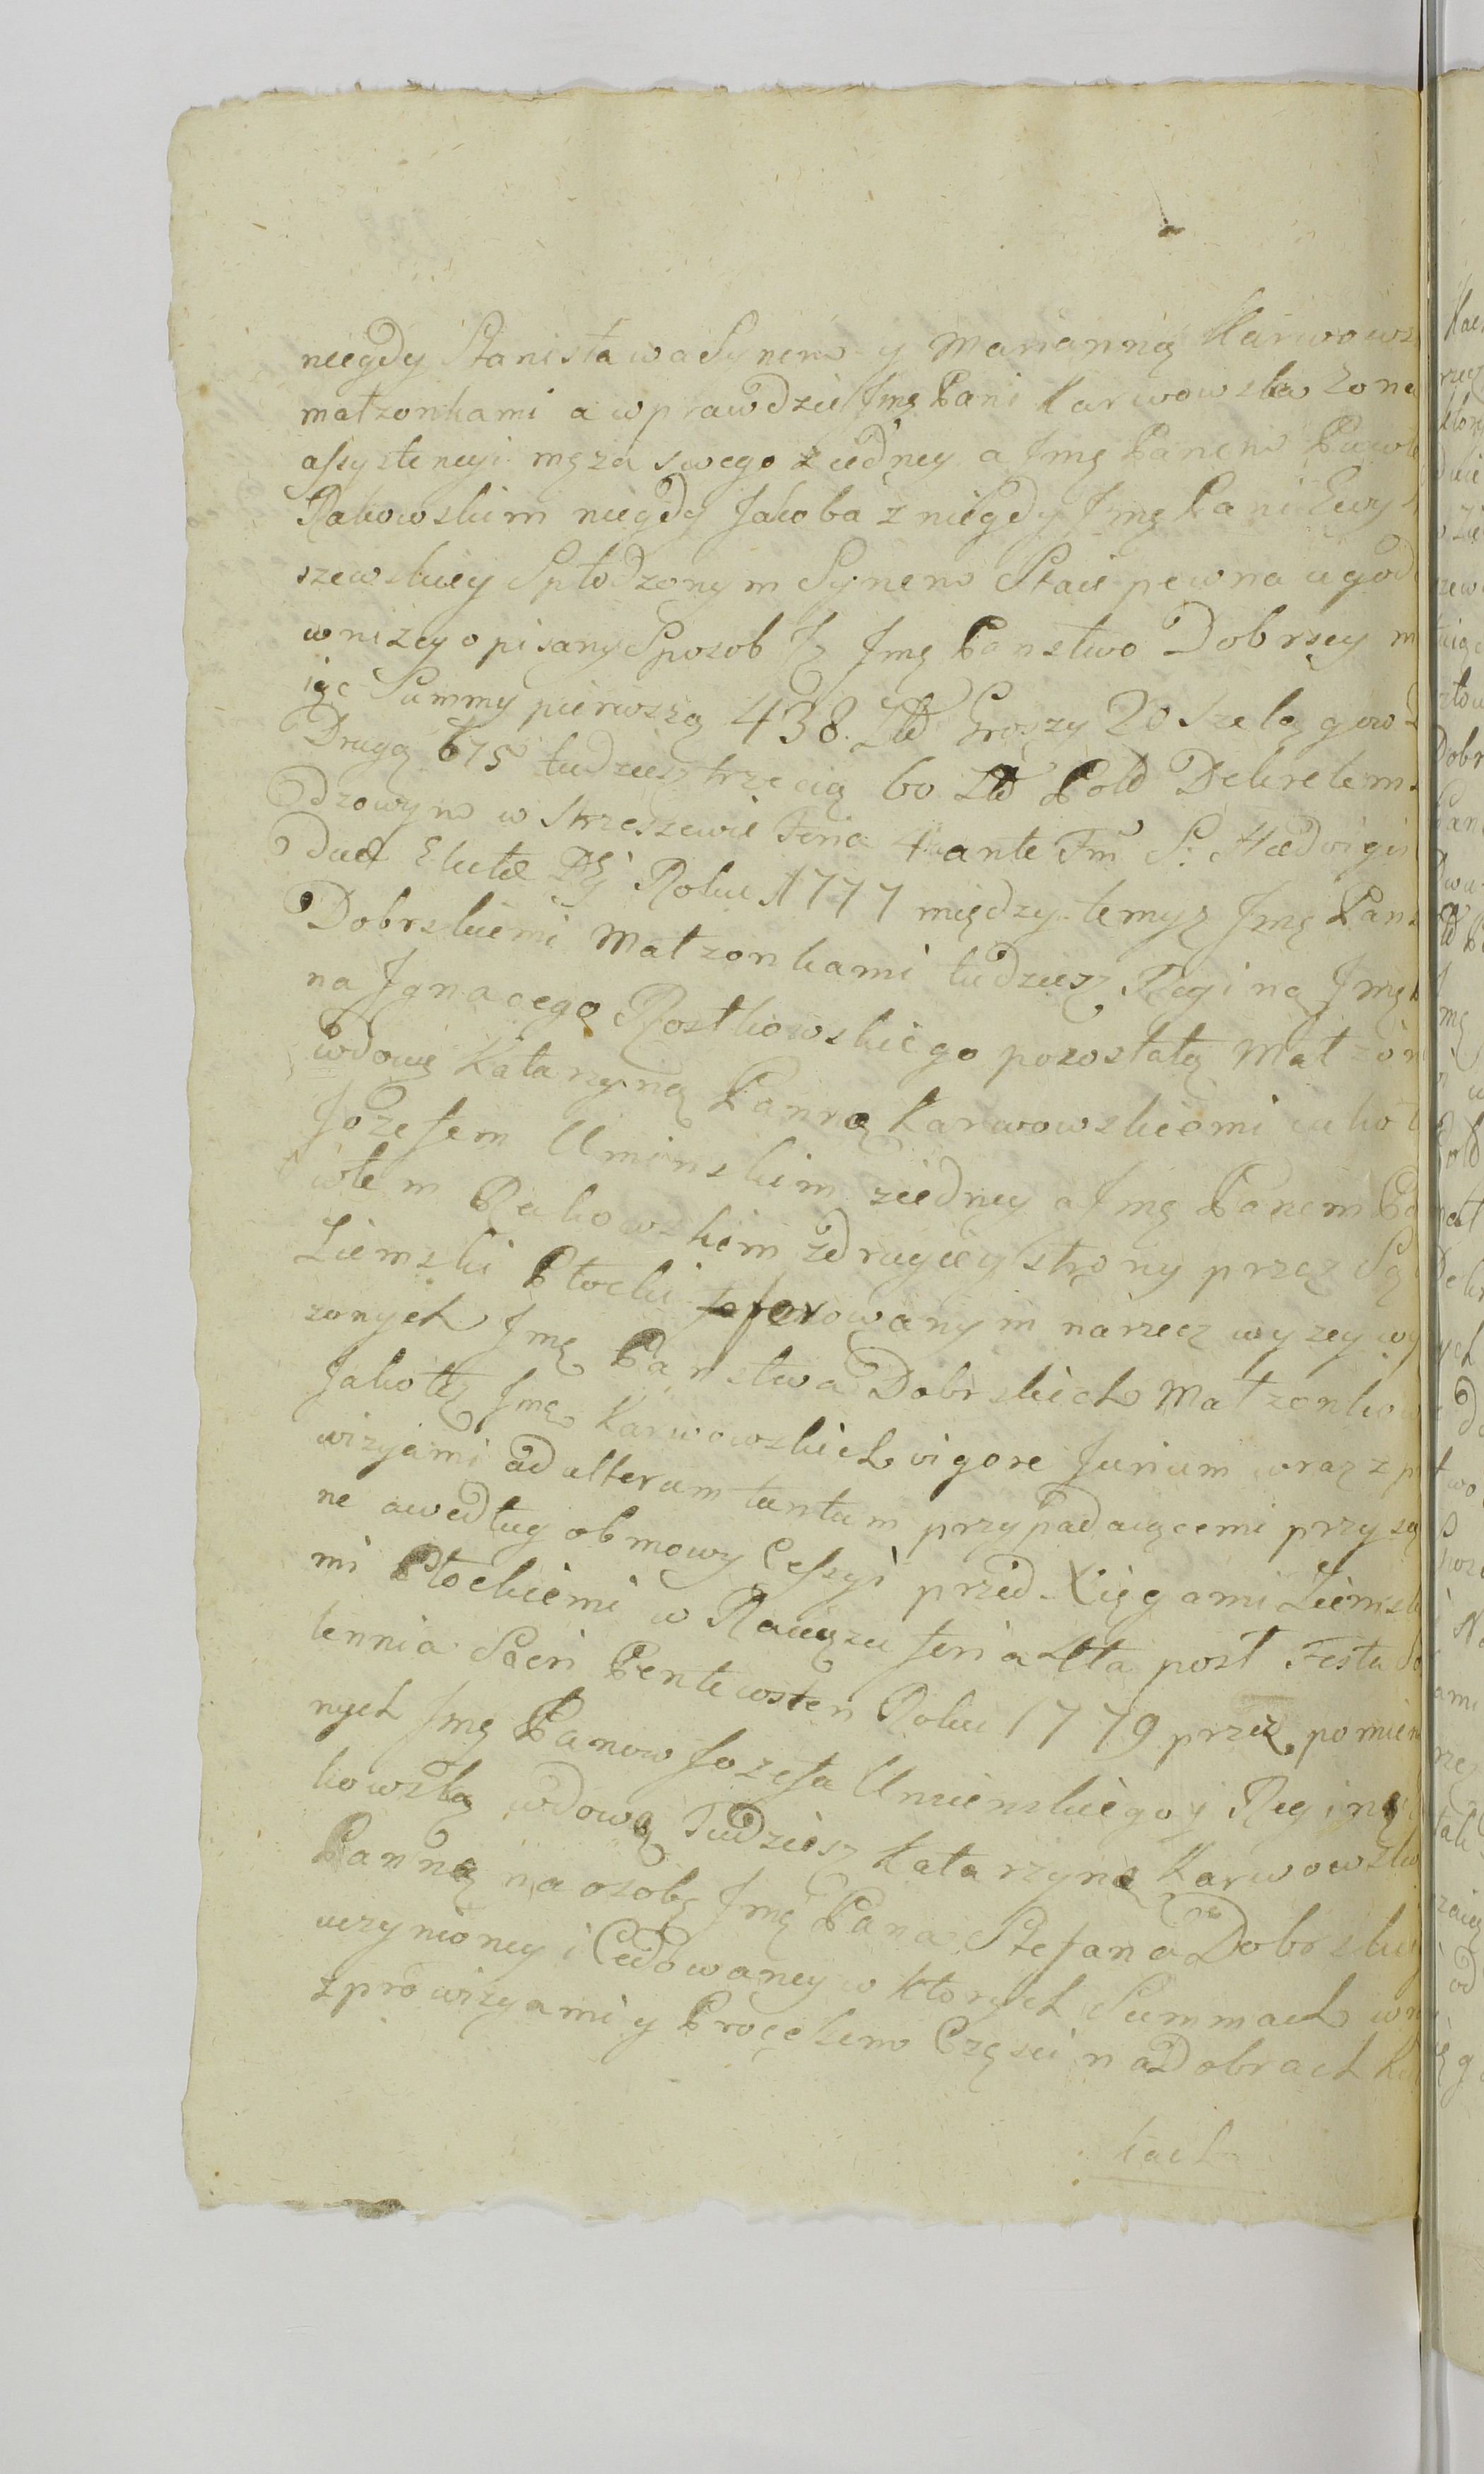 niegdy Stanisława Synem y Marianną Karwows
małzonkami a wprawdzie Jmę Pani Karwowska zona
assystencyi męza swego z iedney a Jmę Panem Pawłe
Rakowskim niegdy Jakoba z niegdy Jmę Pani Ewy
szewskiey Spłodzonym Synem Staie pewna ugod
w nizey opisany Sposob Jz Jmę Panstwo Dobrscy m
iąc Summy pierwszą 438. Złł Groszy 20 Szelągow
Drugą 675 tudziesz trzecią 60 Złł Poll Dekretem
dzowym w Strzeszewie Feria 4 ante Fm S. Hedvigis
Duc Elutae Rku Roku 1777 między temysz Jmę Pans
Dobrskiemi Małzonkami tudziesz Reginą Jmę
na Jgnacego Rostkowskiego pozostałą Małzon
wdową Katarzyną Panną Karwowskiemi iako t
Jozefem Uminskim ziedney a Jmę Panem Pa
włem Rakowskim zdrugiey strony przez Są
Ziemski Płocki ferowanym narzecz wyzey wy
zonych Jmę Panstwa Dobrskich Małzonkow
Jakotez Jmę Karwowskich vigore Jurium wraz z p
wizyami ad alteram tantam przypadaiącemi przysą
ne awedług obmowy Cessyi przed Xięgami Ziemsk
mi Płockiemi w Raciązu feria 4ta post Festa So
lennia Sacri Pentecosten Roku 1779 przez pomien
nych Jmę Panow Jozefa Umienskiego y Reginę
kowską wdową Tudziesz Katarzyną Karwowsk
Panną na osobę Jmę Pana Stefana Dobrski
uczynioney i Cedowaney w ktorych Summach w
z prowizyami y Procentem Częsci na Dobrach K
kach